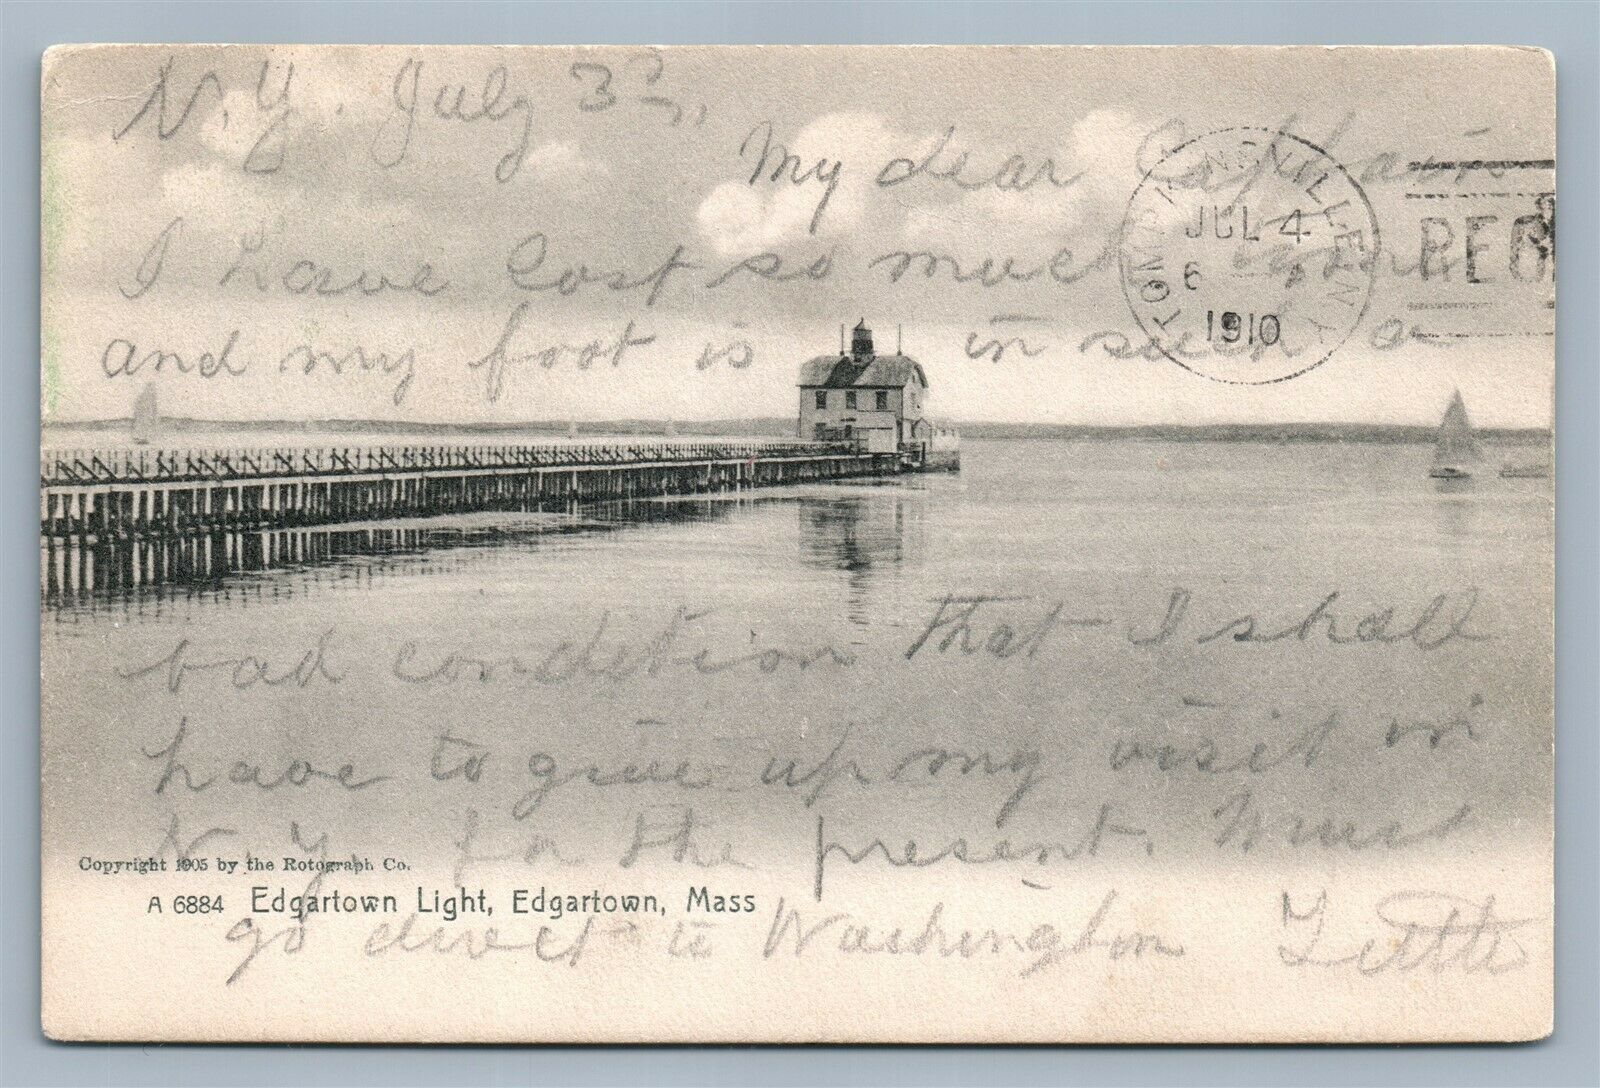 N.Y. July 3rd
My dear Captain
I have lost so much
and my foot is in such a
TOMPKINSVILLE N Y
JUL 4
6
1910
REG
bad condition that I shall
have to give up my visit in
N.Y. for the present. Must
Copyright 1905 by the Rotograph Co.
A 6884 Edgartown Light, Edgartown, Mass
go direct to Washington